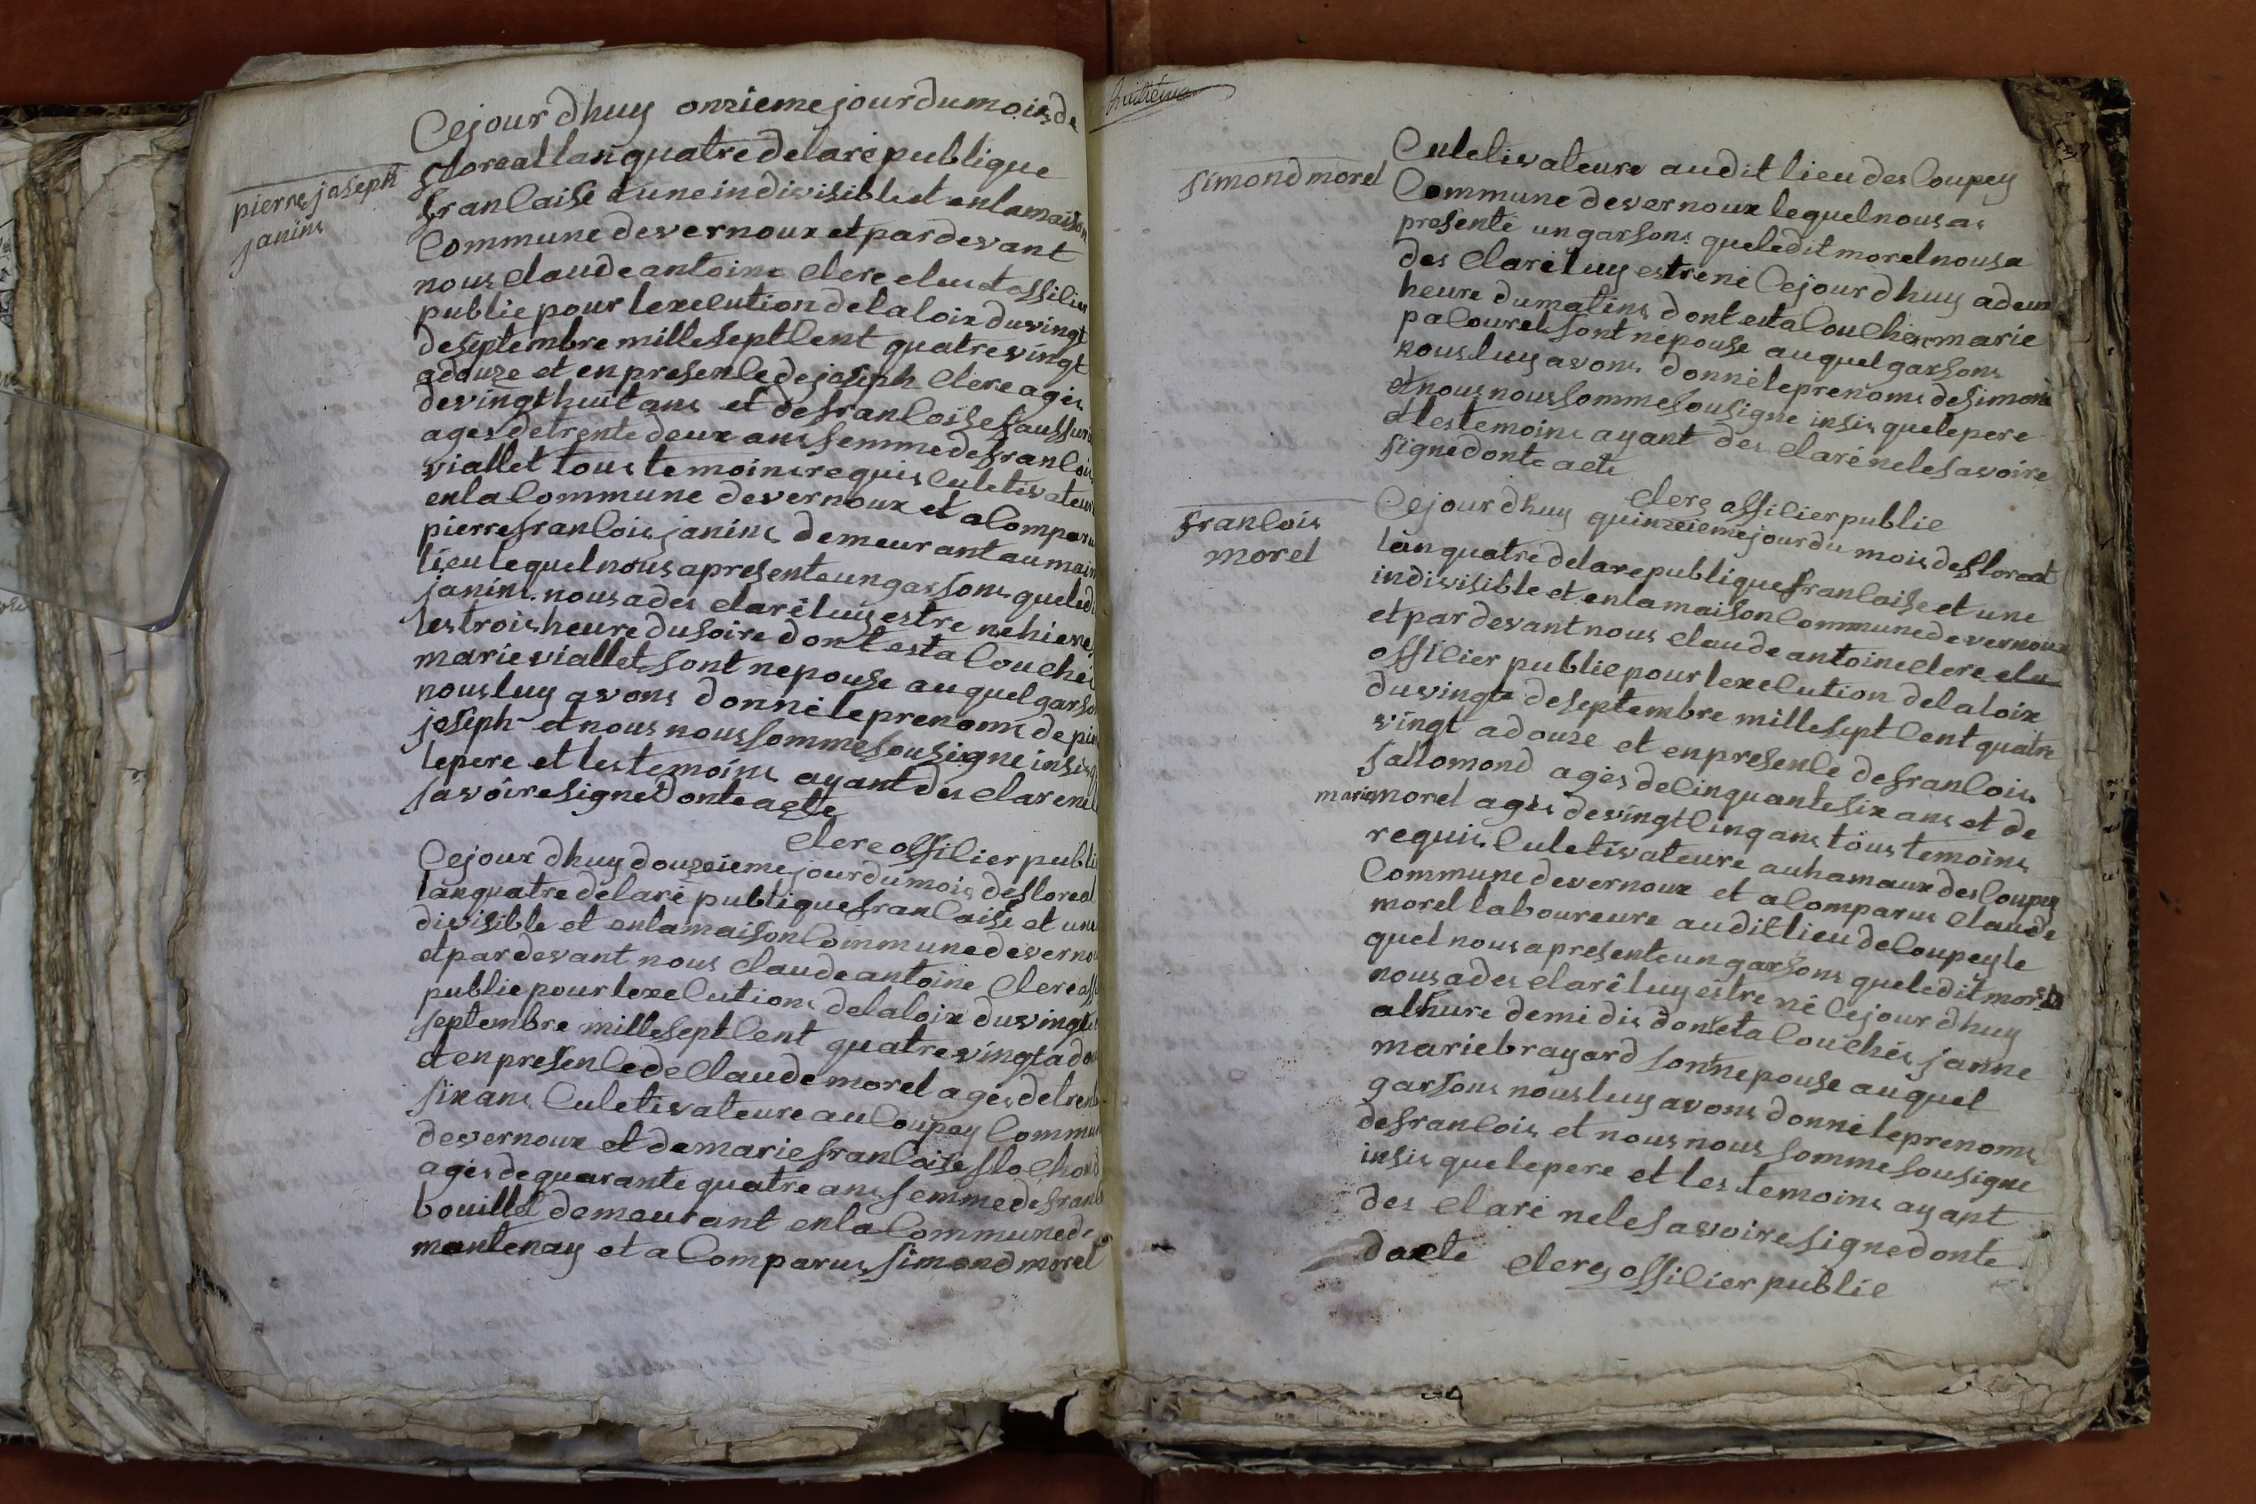 pierre joseph
janins
Cejour dhuy onzieme jour du mois de
floreal lan quatre de la re publique
francaise et une indivisible et en la maison
Commune de vernoux et par devant
nous claude antoine clere elu et officier
public pour lexecution de la loix du vingt
de septembre mille sept cent quatre vingt
adouze et en presence de joseph clere agés
de vingt huit ans et de francoise
agés de trente deux ans femme de francois
viallet tous temoins requis culetivateur
en la Commune de vernoux et a comparu
pierre francois janins demeurant au
lieu lequel nous a presente un garsons que led
janins nous a des claré luy estre ne hiere
les trois heure du soire dont esta couchés
marie viallet sont nepouse au quel garson
nous luy avons donné le prenoms de
joseph et nous nous somme sousigne insis
le pere et les temoins ayant des clare
savoire signe donte acte
clere officier public
Cejour dhuy douzeieme jour du mois de floreal
lan quatre de la re publique francaise et une
divisible et en la maison Commune de
et par devant nous claude antoine clere
public pour lexecutions de la loix du vingt
septembre mille sept cent quatre vingt
et en presence de Claude morel agés de
six ans Culetivateure au Coupey
de vernoux et de marie francoise
agés de quarante quatre ans femme de
bouillet demeurant en la Commune de
montenay et a Comparus simond morel
simond morel
Culetivateure audit lieu des Coupey
Commune de vernoux lequel nous a
presente un garsons que ledit morel nous a
des claré luy estre né Cejour dhuy a deux
heure du matins dont esta Couchés marie
pacouret sont nepouse au quel garsons
nous luy avons donné le prenoms de simond
et nous nous somme sousigne insis que le pere
et les temoins ayant des claré ne le savoire
signe donte acte
clere officier public
francois
morel
Cejour dhuy quinzeieme jour du mois de floreal
lan quatre de la re publique francaise et une
indivisible et en la maison Commune de vernoux
et par devant nous claude antoine clere elu
officier public pour lexecution de la loix
du vingt de septembre mille sept cent quatre
vingt adouze et en presence de francois
sallomond agés de cinquante six ans et de
marie morel agés de vingt cinq ans tous temoins
requis Culetivateure au hamaux des Coupey
Commune de vernoux et a Comparus claude
morel laboureure audit lieu de Coupey le
quel nous a presente un garsons que ledit morel
nous a des claré luy estre né Cejour dhuy
a lhure de midis dont eta Couchés janne
marie brayard sont nepouse au quel
garsons nous luy avons donné le prenoms
de francois et nous nous somme sousigne
insis que le pere et les temoins ayant
des claré ne le savoire signe donte
dacte clere officier public